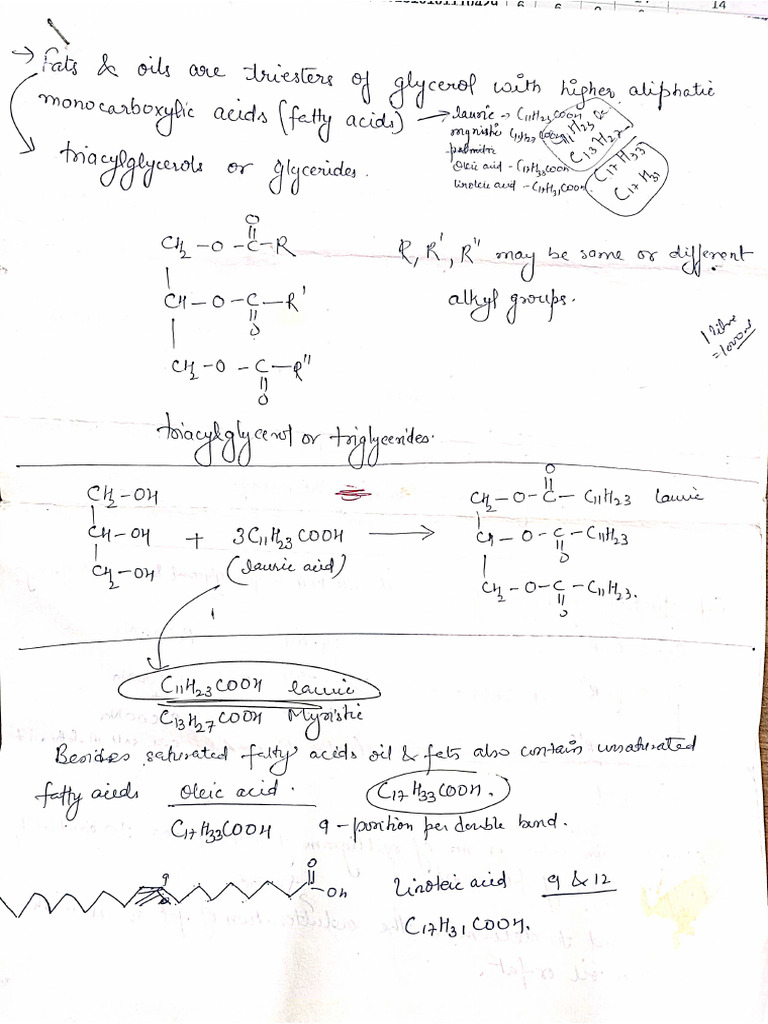 14
→ Fats & oils are triesters of glycerol with higher aliphatic
monocarboxylic acids (fatty acids) → lauric → C11H23COOH
myristic C13H27COOH
palmitic
Oleic acid - C17H33COOH
linoleic acid - C17H31COOH
C11H23 or
C13H27
C17H33
C17H31
triacylglycerols or glycerides.
CH2 - O - C - R
O
CH - O - C - R'
O
CH2 - O - C - R"
O
R, R', R" may be same or different
alkyl groups.
1 litre
= 1000 ml
triacylglycerol or triglycerides.
CH2 - OH
CH - OH + 3C11H23COOH →
CH2 - OH (lauric acid)
O
CH2 - O - C - C11H23 lauric
CH - O - C - C11H23
O
CH2 - O - C - C11H23.
O
C11H23COOH lauric
C13H27COOH Myristic
Besides saturated fatty acids oil & fats also contain unsaturated
fatty acids Oleic acid. C17H33COOH.
C17H33COOH 9 - position per double bond.
9
O
OH
Linoleic acid 9 & 12
C17H31COOH.